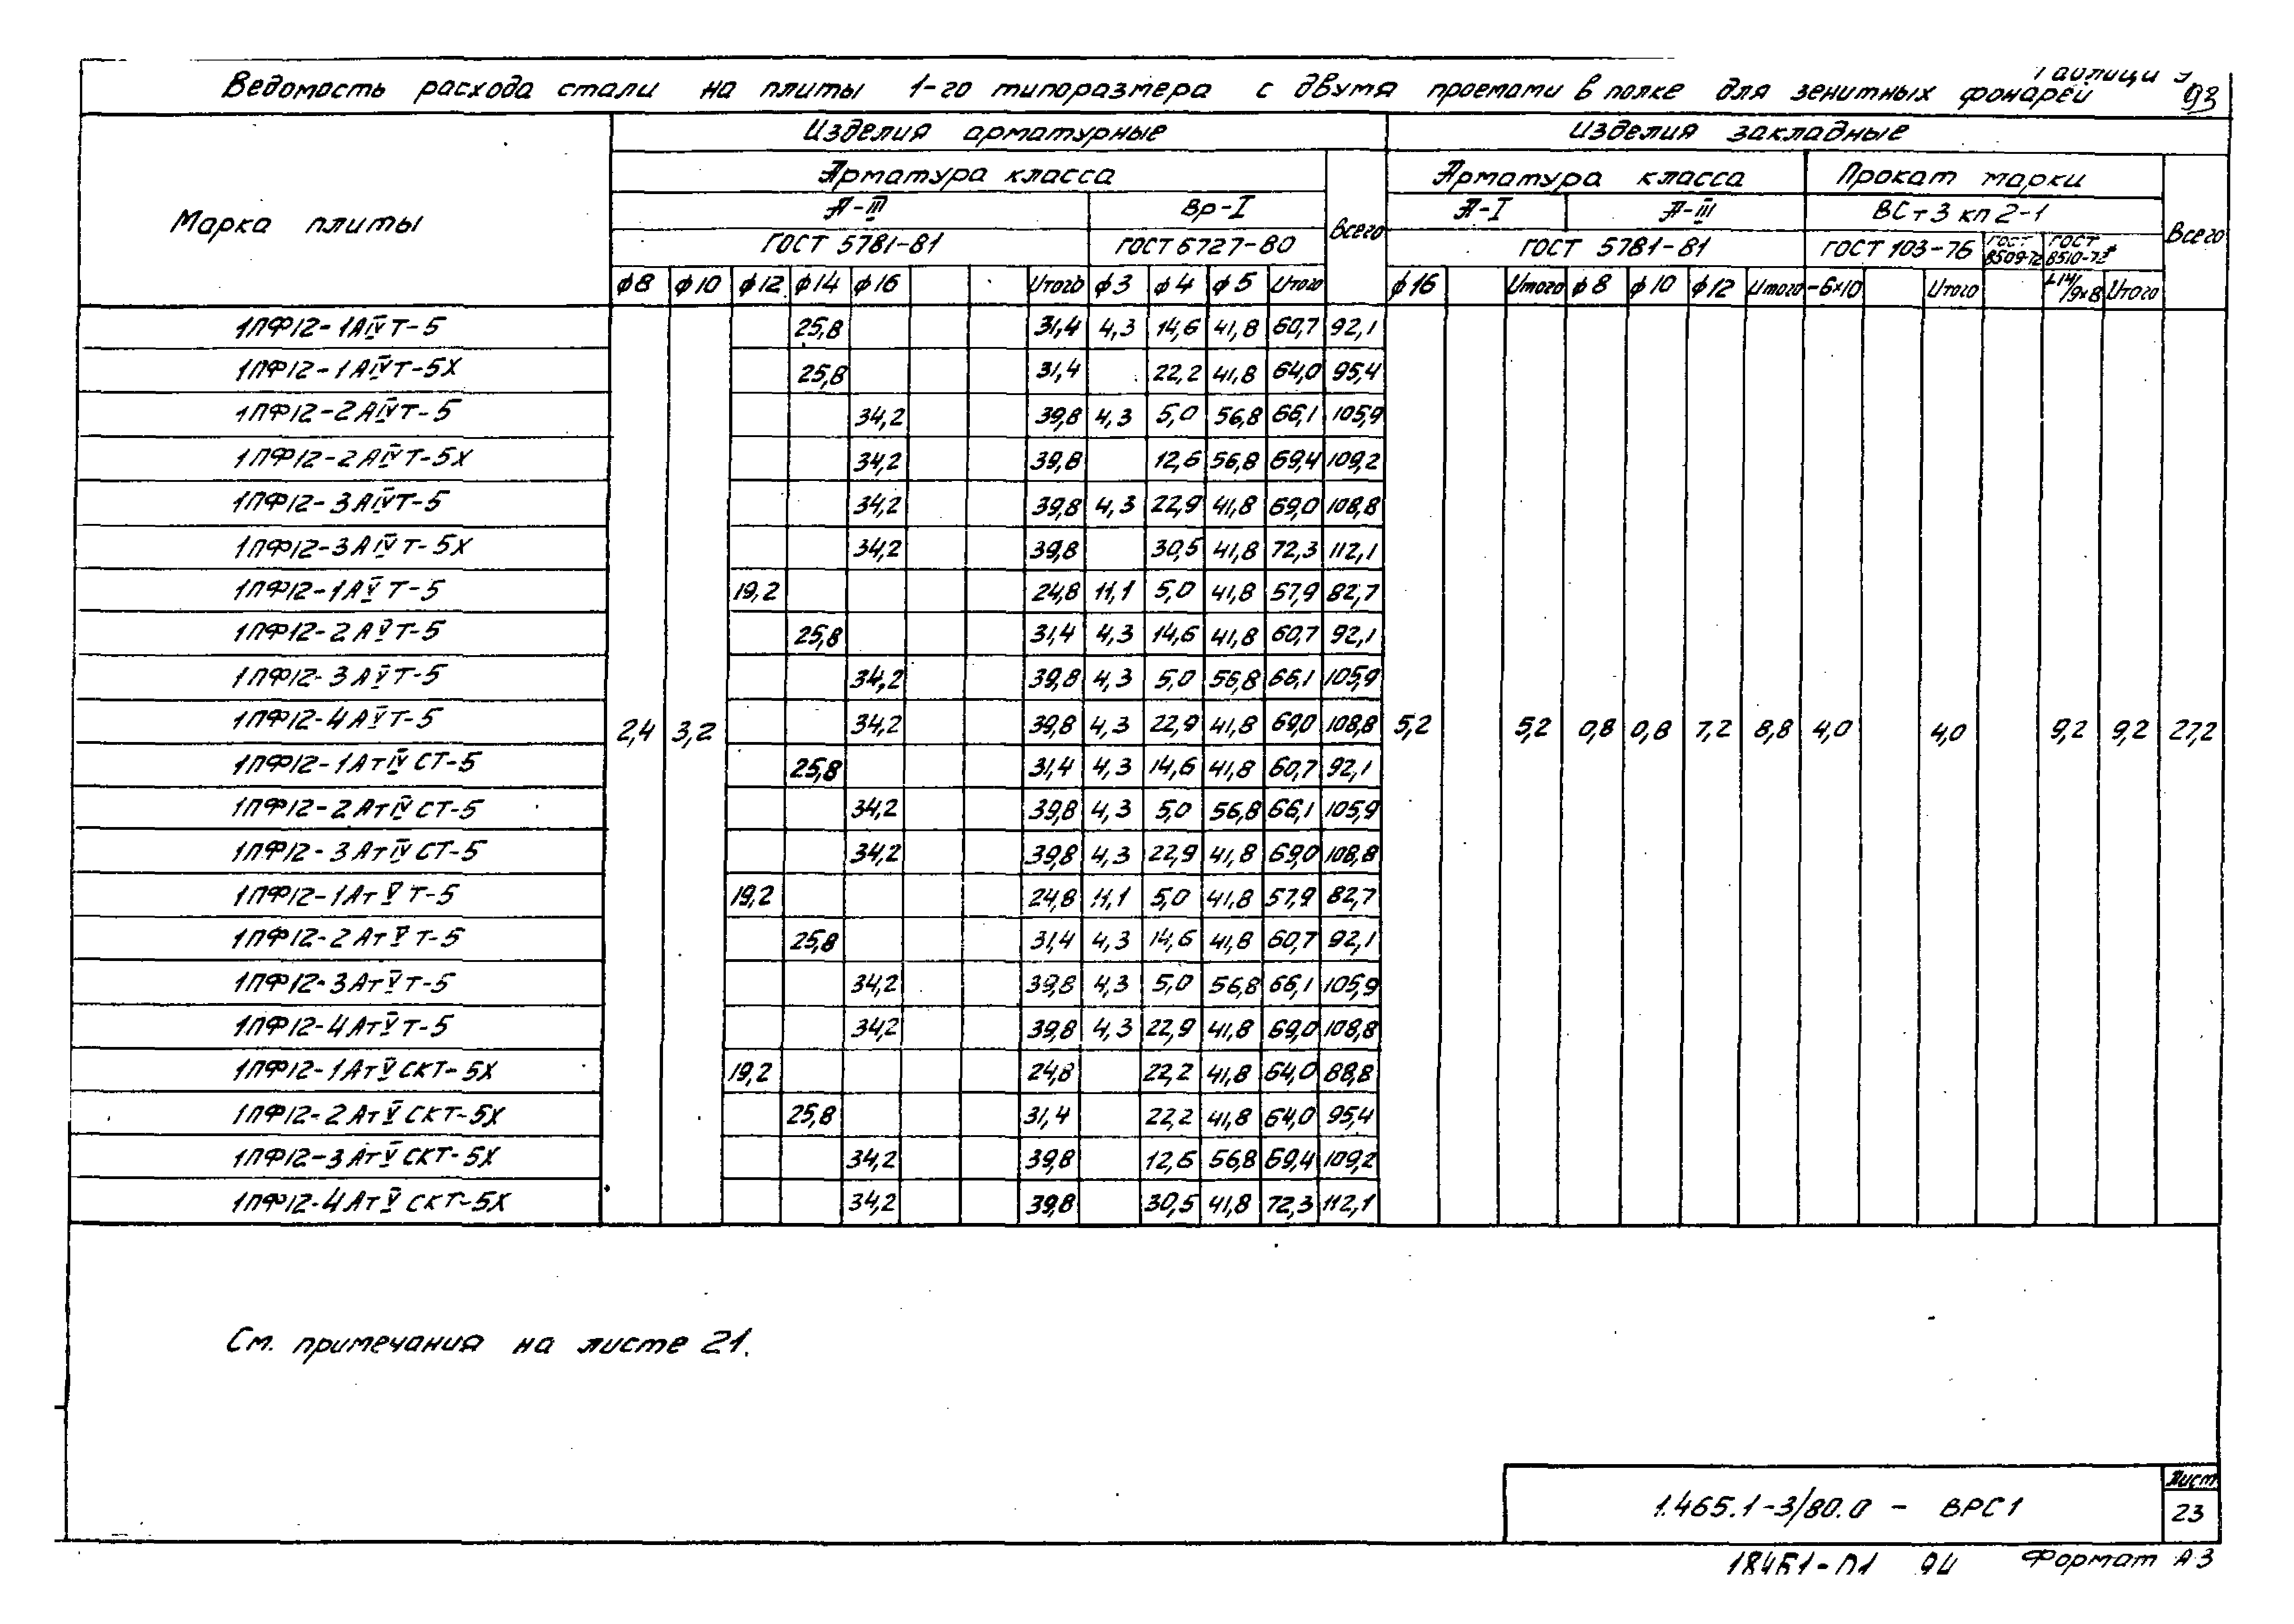 Таблица 9
Ведомость расхода стали на плиты 1-го типоразмера с двумя проемами в полке для зенитных фонарей 93
Марка плиты
Изделия арматурные Изделия закладные
Арматура класса Всего Арматура класса Прокат марки Всего
А-III Вр-I А-I А-III ВСт3 кп 2-1
ГОСТ 5781-81 ГОСТ 6727-80 ГОСТ 5781-81 ГОСТ 103-76 ГОСТ 8509-72 ГОСТ 8510-72*
ф8 ф10 ф12 ф14 ф16 Итого ф3 ф4 ф5 Итого ф16 Итого ф8 ф10 ф12 Итого -6×10 Итого L14/9×8 Итого
1ПФ12-1АIVТ-5 25,8 31,4 4,3 14,6 41,8 60,7 92,1
1ПФ12-1АIVТ-5Х 25,8 31,4 22,2 41,8 64,0 95,4
1ПФ12-2АIVТ-5 34,2 39,8 4,3 5,0 56,8 66,1 105,9
1ПФ12-2АIVТ-5Х 34,2 39,8 12,6 56,8 69,4 109,2
1ПФ12-3АIVТ-5 34,2 39,8 4,3 22,9 41,8 69,0 108,8
1ПФ12-3АIVТ-5Х 34,2 39,8 30,5 41,8 72,3 112,1
1ПФ12-1АVТ-5 19,2 24,8 11,1 5,0 41,8 57,9 82,7
1ПФ12-2АVТ-5 25,8 31,4 4,3 14,6 41,8 60,7 92,1
1ПФ12-3АVТ-5 34,2 39,8 4,3 5,0 56,8 66,1 105,9
1ПФ12-4АVТ-5 2,4 3,2 34,2 39,8 4,3 22,9 41,8 69,0 108,8 5,2 5,2 0,8 0,8 7,2 8,8 4,0 4,0 9,2 9,2 27,2
1ПФ12-1АтIVСТ-5 25,8 31,4 4,3 14,6 41,8 60,7 92,1
1ПФ12-2АтIVСТ-5 34,2 39,8 4,3 5,0 56,8 66,1 105,9
1ПФ12-3АтIVСТ-5 34,2 39,8 4,3 22,9 41,8 69,0 108,8
1ПФ12-1АтVТ-5 19,2 24,8 11,1 5,0 41,8 57,9 82,7
1ПФ12-2АтVТ-5 25,8 31,4 4,3 14,6 41,8 60,7 92,1
1ПФ12-3АтVТ-5 34,2 39,8 4,3 5,0 56,8 66,1 105,9
1ПФ12-4АтVТ-5 34,2 39,8 4,3 22,9 41,8 69,0 108,8
1ПФ12-1АтVСКТ-5Х 19,2 24,8 22,2 41,8 64,0 88,8
1ПФ12-2АтVСКТ-5Х 25,8 31,4 22,2 41,8 64,0 95,4
1ПФ12-3АтVСКТ-5Х 34,2 39,8 12,6 56,8 69,4 109,2
1ПФ12-4АтVСКТ-5Х 34,2 39,8 30,5 41,8 72,3 112,1
См. примечания на листе 21.
1.465.1-3/80.0 - ВРС1
Лист
23
18461-01 94 Формат А3